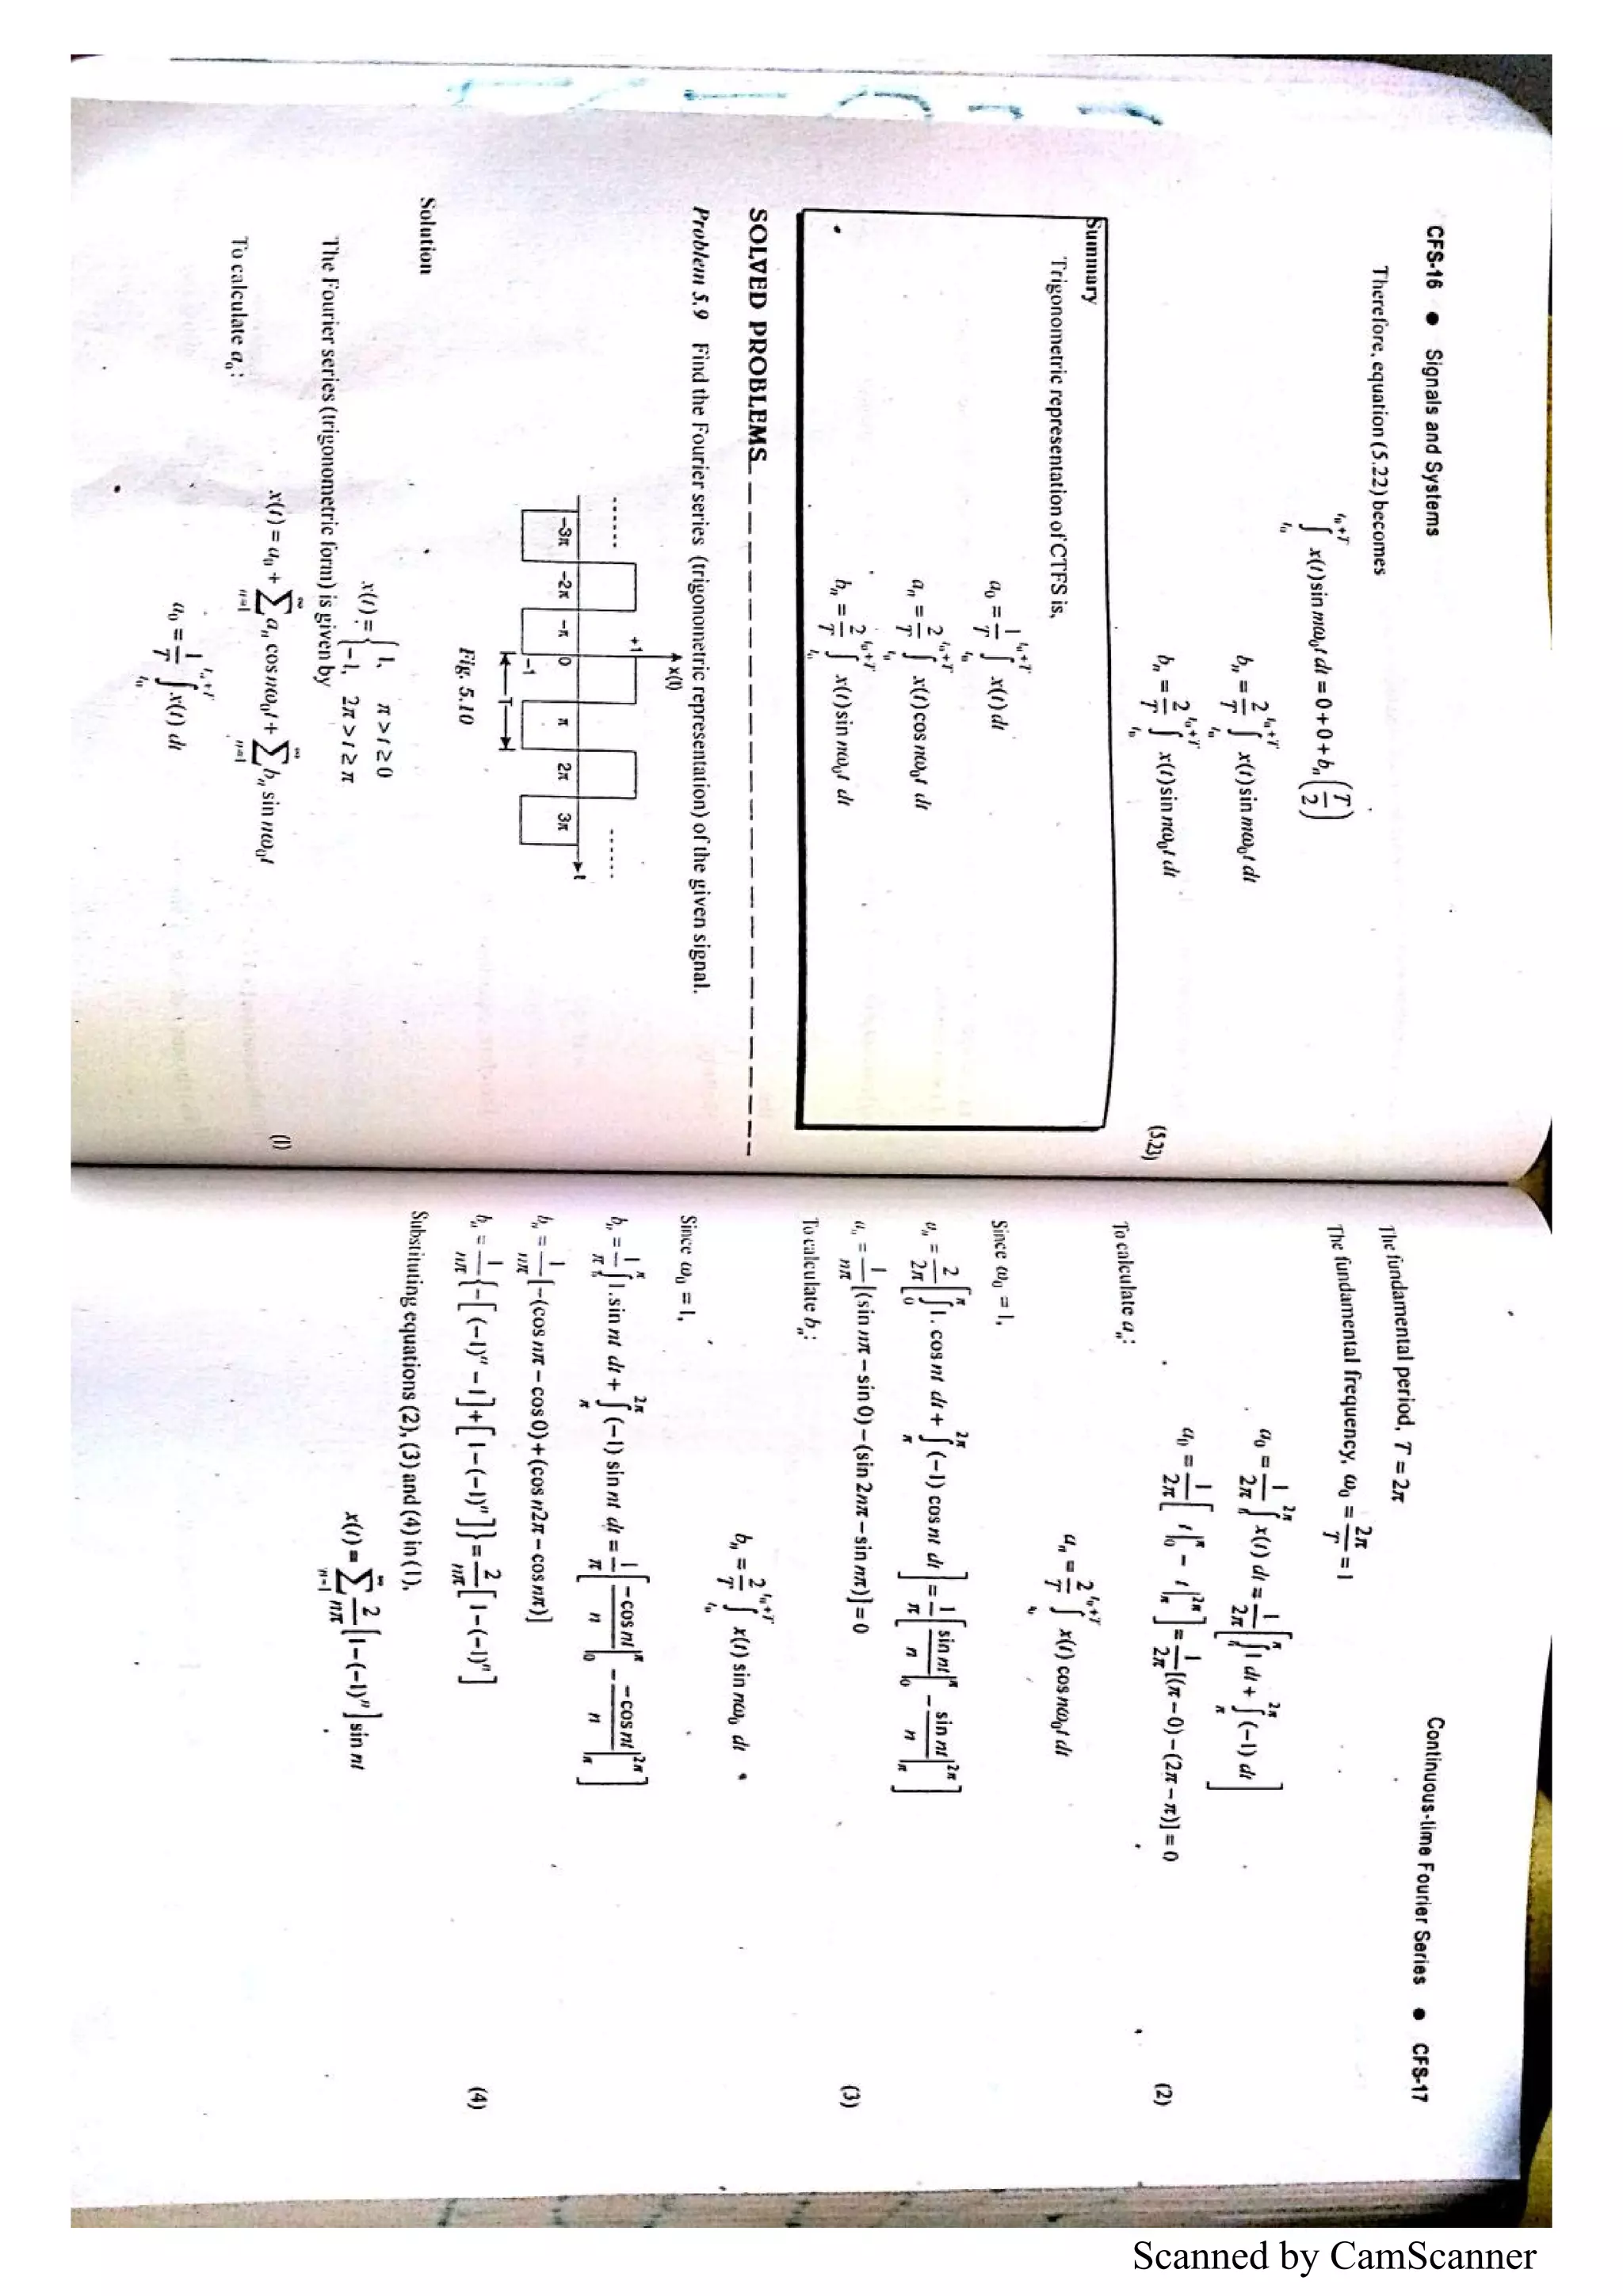 CFS-16 ● Signals and Systems
Therefore, equation (5.22) becomes
∫_{t₀}^{t₀+T} x(t) sin nω₀t dt = 0+0+bₙ(T/2)
bₙ = 2/T ∫_{t₀}^{t₀+T} x(t) sin nω₀t dt
bₙ = 2/T ∫_{t₀}^{t₀+T} x(t) sin nω₀t dt (5.23)
Summary
Trigonometric representation of CTFS is,
a₀ = 1/T ∫_{t₀}^{t₀+T} x(t) dt
aₙ = 2/T ∫_{t₀}^{t₀+T} x(t) cos nω₀t dt
bₙ = 2/T ∫_{t₀}^{t₀+T} x(t) sin nω₀t dt
SOLVED PROBLEMS
Problem 5.9 Find the Fourier series (trigonometric representation) of the given signal.
x(t)
+1
-3π -2π -π 0 π 2π 3π t
-1
T
Fig. 5.10
Solution
x(t) = { 1, π > t ≥ 0
-1, 2π > t ≥ π
The Fourier series (trigonometric form) is given by
x(t) = a₀ + ∑_{n=1}^{∞} aₙ cos nω₀t + ∑_{n=1}^{∞} bₙ sin nω₀t (1)
To calculate a₀:
a₀ = 1/T ∫_{t₀}^{t₀+T} x(t) dt
Continuous-time Fourier Series ● CFS-17
The fundamental period, T = 2π
The fundamental frequency, ω₀ = 2π/T = 1
a₀ = 1/2π ∫_{0}^{2π} x(t) dt = 1/2π [∫_{0}^{π} 1 dt + ∫_{π}^{2π} (-1) dt]
a₀ = 1/2π [t|_{0}^{π} - t|_{π}^{2π}] = 1/2π [(π-0)-(2π-π)] = 0 (2)
To calculate aₙ:
aₙ = 2/T ∫_{t₀}^{t₀+T} x(t) cos nω₀t dt
Since ω₀ = 1,
aₙ = 2/2π [∫_{0}^{π} 1. cos nt dt + ∫_{π}^{2π} (-1) cos nt dt] = 1/π [sin nt/n|_{0}^{π} - sin nt/n|_{π}^{2π}]
aₙ = 1/nπ [(sin nπ - sin 0) - (sin 2nπ - sin nπ)] = 0 (3)
To calculate bₙ:
bₙ = 2/T ∫_{t₀}^{t₀+T} x(t) sin nω₀ dt
Since ω₀ = 1,
bₙ = 1/π ∫_{0}^{π} 1.sin nt dt + ∫_{π}^{2π} (-1) sin nt dt = 1/π [-cos nt/n|_{0}^{π} - -cos nt/n|_{π}^{2π}]
bₙ = 1/nπ [-(cos nπ - cos 0) + (cos n2π - cos nπ)]
bₙ = 1/nπ {-[(-1)ⁿ - 1] + [1-(-1)ⁿ]} = 2/nπ [1-(-1)ⁿ] (4)
Substituting equations (2), (3) and (4) in (1),
x(t) = ∑_{n=1}^{∞} 2/nπ [1-(-1)ⁿ] sin nt
Scanned by CamScanner